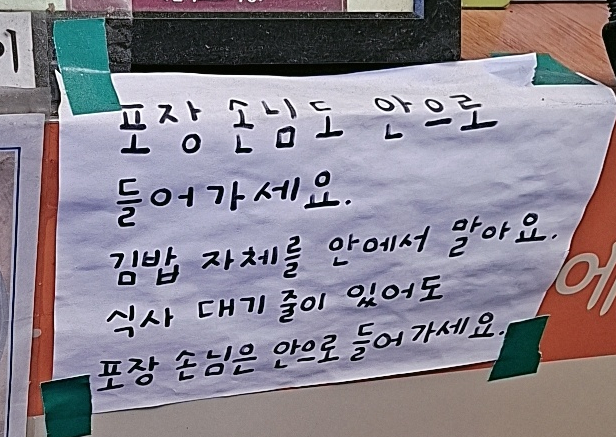 포장 손님도 안으로
들어가세요.
김밥 자체를 안에서 말아요.
식사 대기 줄이 있어도
포장 손님은 안으로 들어가세요.